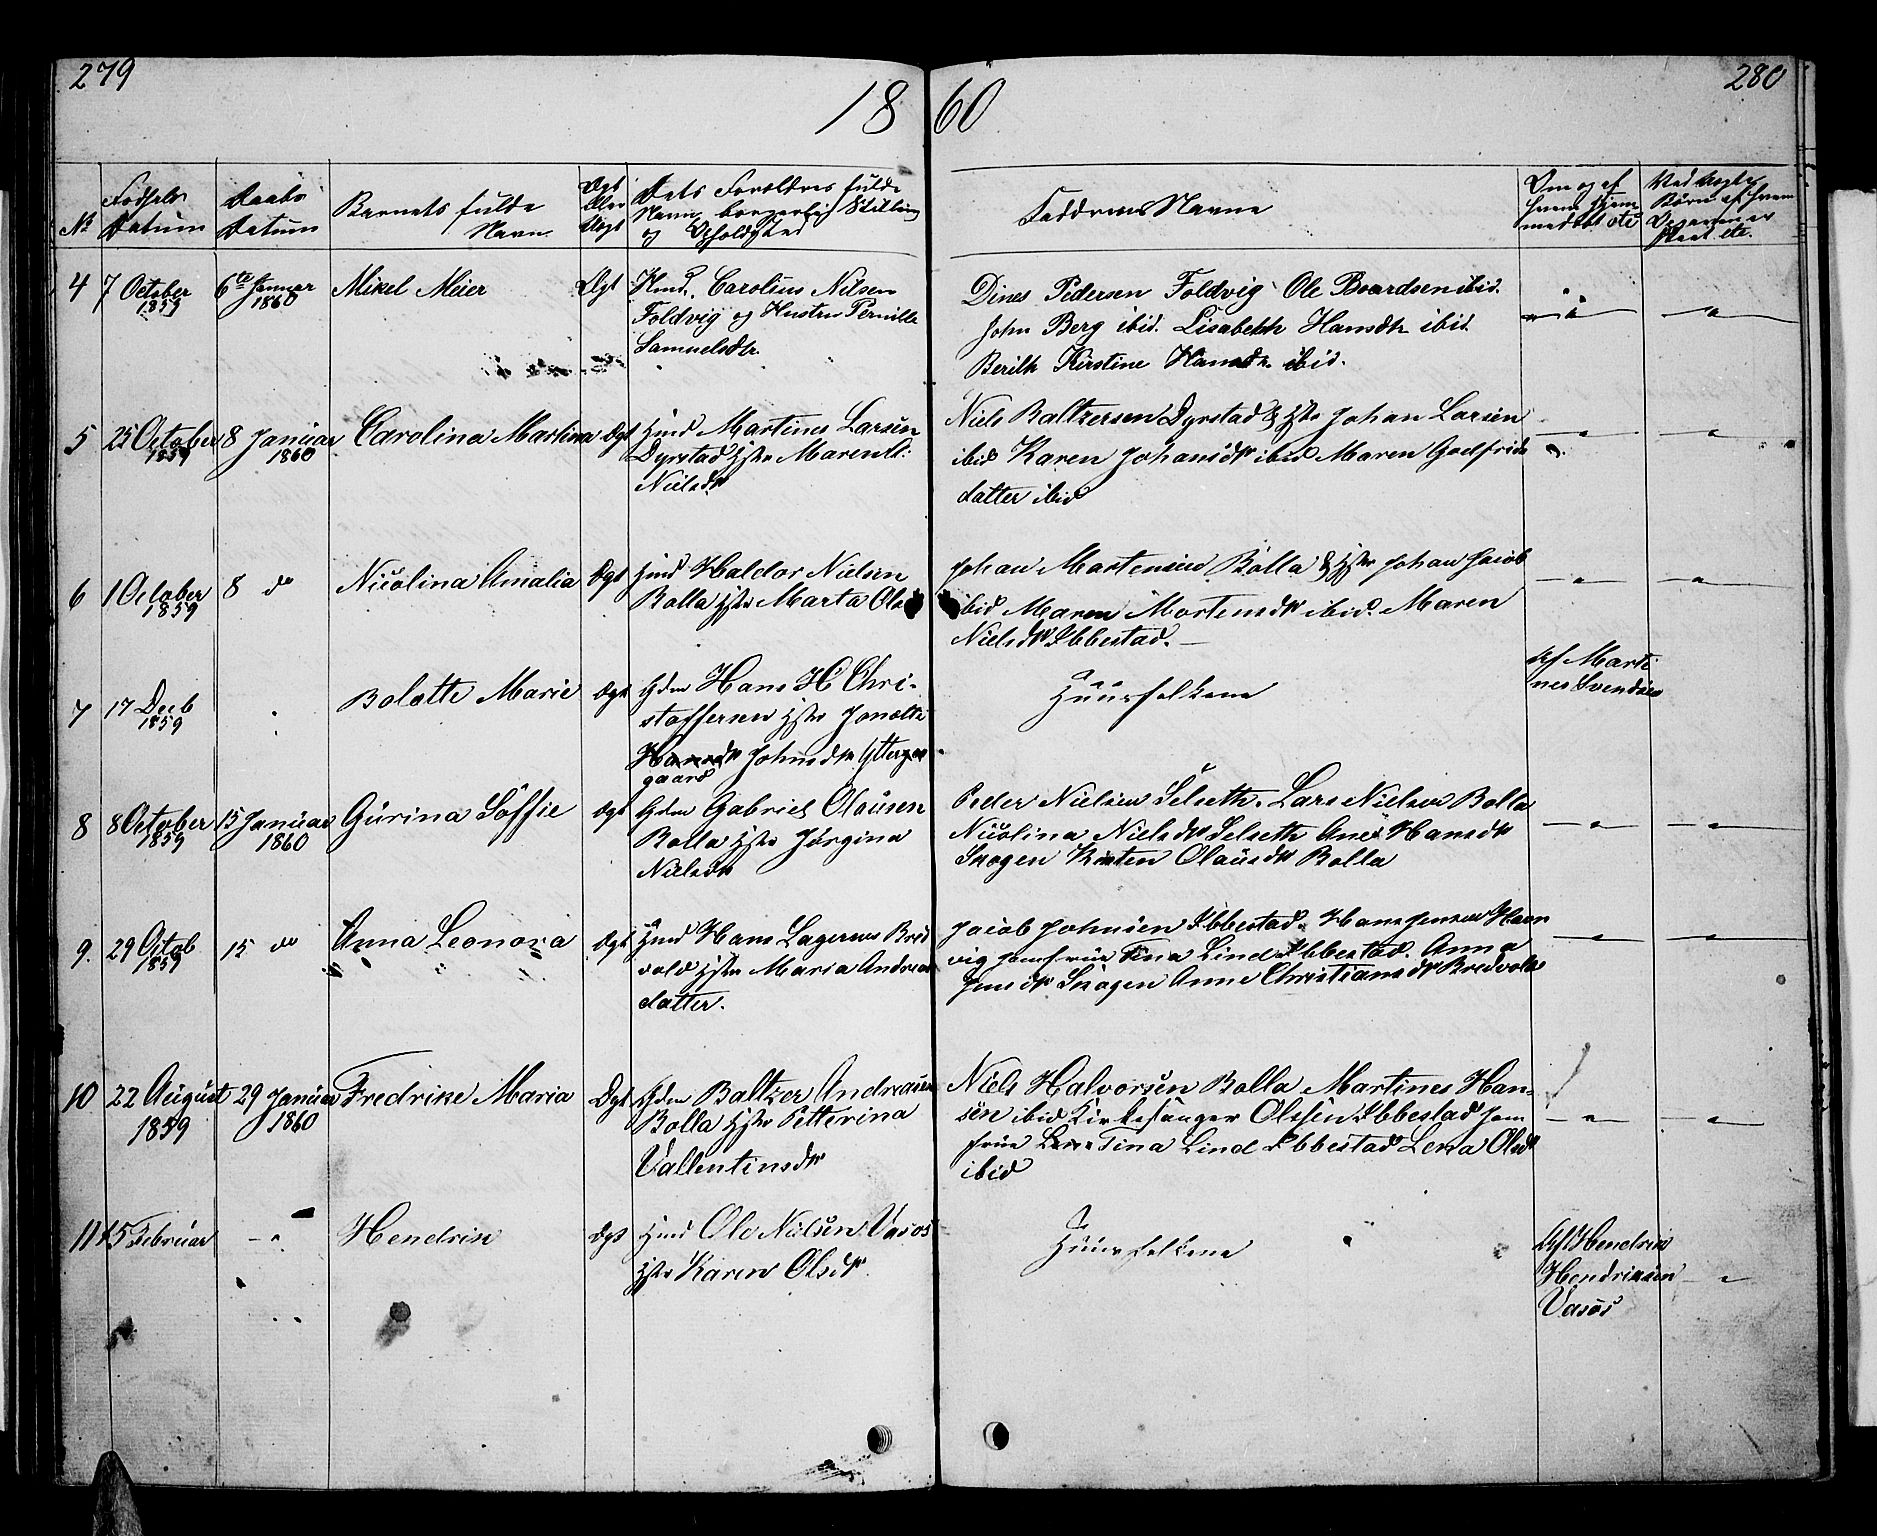 279
280
18 60
No
Fødsels Datum
Daabs Datum
Barnets fulde Navn
Ægt eller Uægt
Dets Forældres fulde Navn borgerlig Stilling og Opholdsted
Faddrenes Navne
Om og af hvem hjemmedøbt etc
4 7 October 1859
6te Januar 1860
Mikel Meier
Ægt
Hmd. Carolius Nilsen
Foldvig og Hustru Pernille
Samuelsdtr.
Dines Pedersen Foldvig Ole Baardsen ibid.
John Berg ibid. Lisabeth Hansdtr ibid.
Berith Kirstine Hansdtr. ibid.
5 25 October 1859
8 Januar 1860
Carolina Martina
Ægt
Hmd Martines Larsen
Dyrstad Hstr Maren
Nielsdtr
Niels Baltzersen Dyrstad & Hstr Johan Larsen
ibid Karen Johansdtr ibid Maren Godfrids
datter ibid
6 1 October 1859
8 do
Nicolina Amalia
Ægt
Hmd Haldor Nielsen
Rolla Hstr Marta Ols
Johan Martensen Rolla & Hstr Johan Jacob
ibid Maren Mortensdtr ibid. Maren
Nielsdtr Ibbestad.
7 17 Decb 1859
Bolette Marie
Ægt
Gdm Hans H Chri-
stoffersen Hstr Jonette
Hansdtr Johnsdtr Ytterge
gaard
Huusfolkene
Af Marti
nes Svendsen
8 8 October 1859
15 Januar 1860
Gurina Soffie
Ægt
Gdm Gabriel Olausen
Rolla Hstr Jørgina
Nielsdtr
Peder Nielsen Selseth. Lars Nielsen Rolla
Nicolina Nielsdtr Selseth Ane Hansdtr
Skogen Kirsten Olausdtr Rolla
9. 29 Octob 1859
15 do
Anna Leonora
Ægt
Hmd Hans Lagersen Bred
vold Hstr Maria Andreas
datter.
Jacob Johnsen Ibbestad. Hans Jensen Havn
vig Jomfrue Tina Lind Ibbestad. Anna
Jensdtr Skogen Anne Christiansdtr Bredvold
10 22 August 1859
29 Januar 1860
Fredrike Maria
Ægt
Gdm Baltzer Andreasen
Rolla Hstr Petterina
Vallentinsdtr
Niels Halvorsen Rolla Martines Han-
sen ibid Kirkesanger Olsen Ibbestad Jom
frue Tina Lind Ibbestad Lena Olsdtr
ibid
11 15 Februar
Hendrik
Ægt
Hmd Ole Nielsen Vasøs
Hstr Karen Olsdtr.
Huusfolkene
Af Hendrik
Hendriksen
Vasøs